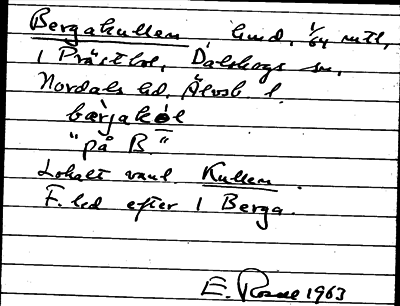 Bergakullen hmd, 1/64 mtl,
1 Prästbol, Dalskogs sn,
Nordals hd, Älvsb l.
bærjakøl
"på B."
Lokalt vanl. Kullen.
F. led efter 1 Berga.
E. Rosell 1963